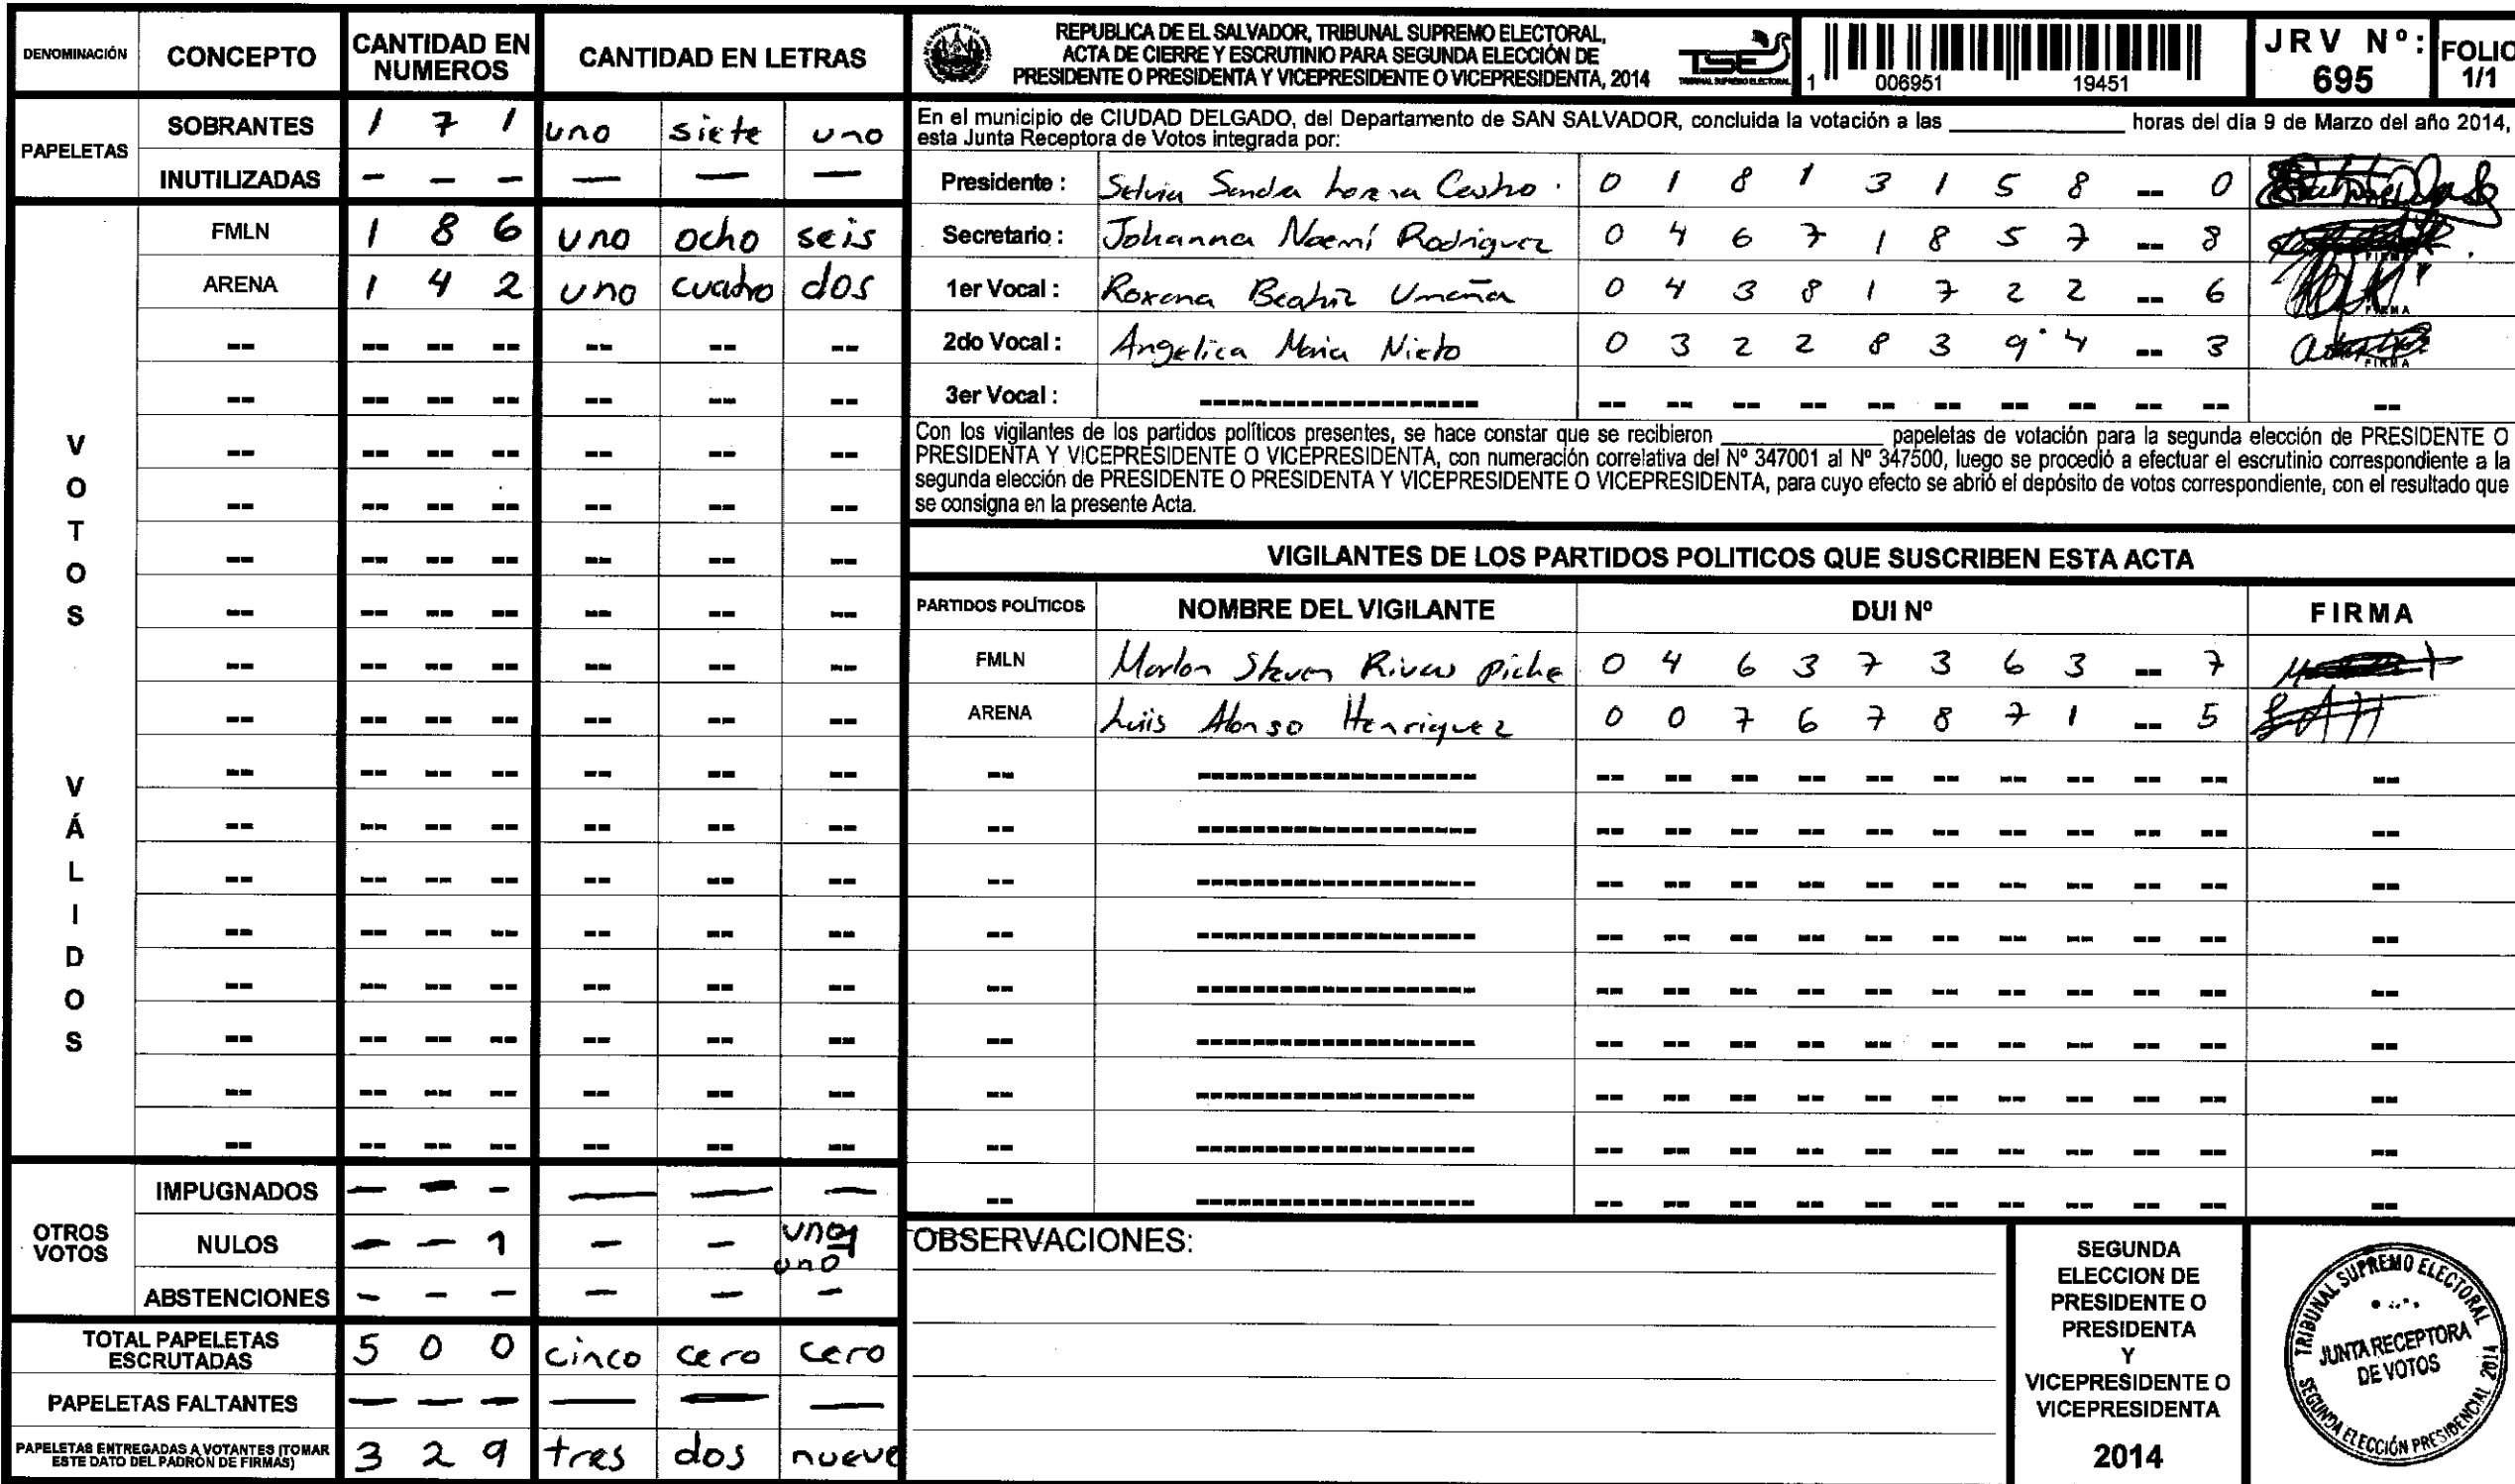 DENOMINACIÓN CONCEPTO CANTIDAD EN NUMEROS CANTIDAD EN LETRAS
PAPELETAS
SOBRANTES 1 7 1 uno siete uno
INUTILIZADAS - - - - - -
VOTOS VÁLIDOS
FMLN 1 8 6 uno ocho seis
ARENA 1 4 2 uno cuatro dos
OTROS VOTOS
IMPUGNADOS - - - - - -
NULOS - - 1 - - uno
uno
ABSTENCIONES - - - - - -
TOTAL PAPELETAS ESCRUTADAS 5 0 0 cinco cero cero
PAPELETAS FALTANTES - - - - - -
PAPELETAS ENTREGADAS A VOTANTES (TOMAR ESTE DATO DEL PADRÓN DE FIRMAS) 3 2 9 tres dos nueve
REPUBLICA DE EL SALVADOR, TRIBUNAL SUPREMO ELECTORAL,
ACTA DE CIERRE Y ESCRUTINIO PARA SEGUNDA ELECCIÓN DE
PRESIDENTE O PRESIDENTA Y VICEPRESIDENTE O VICEPRESIDENTA, 2014
TSE
TRIBUNAL SUPREMO ELECTORAL
1 006951 19451
JRV Nº: 695
FOLIO 1/1
En el municipio de CIUDAD DELGADO, del Departamento de SAN SALVADOR, concluida la votación a las ________ horas del día 9 de Marzo del año 2014,
esta Junta Receptora de Votos integrada por:
Presidente : Sonda Castro 0 1 8 1 3 1 5 8 -- 0
Secretario : Johanna Noemí Rodriguez 0 4 6 7 1 8 5 7 -- 8
1er Vocal : Roxana Beatriz Umaña 0 4 3 8 1 7 2 2 -- 6
2do Vocal : Angelica Maria Nieto 0 3 2 2 8 3 9 4 -- 3
3er Vocal :
Con los vigilantes de los partidos políticos presentes, se hace constar que se recibieron ________ papeletas de votación para la segunda elección de PRESIDENTE O
PRESIDENTA Y VICEPRESIDENTE O VICEPRESIDENTA, con numeración correlativa del Nº 347001 al Nº 347500, luego se procedió a efectuar el escrutinio correspondiente a la
segunda elección de PRESIDENTE O PRESIDENTA Y VICEPRESIDENTE O VICEPRESIDENTA, para cuyo efecto se abrió el depósito de votos correspondiente, con el resultado que
se consigna en la presente Acta.
VIGILANTES DE LOS PARTIDOS POLITICOS QUE SUSCRIBEN ESTA ACTA
PARTIDOS POLÍTICOS NOMBRE DEL VIGILANTE DUI Nº FIRMA
FMLN Marlon Steven Rivas Piche 0 4 6 3 7 3 6 3 -- 7
ARENA Luis Alonso Henriquez 0 0 7 6 7 8 7 1 -- 5
OBSERVACIONES:
SEGUNDA
ELECCION DE
PRESIDENTE O
PRESIDENTA
Y
VICEPRESIDENTE O
VICEPRESIDENTA
2014
TRIBUNAL SUPREMO ELECTORAL
JUNTA RECEPTORA
DE VOTOS
SEGUNDA ELECCIÓN PRESIDENCIAL 2014